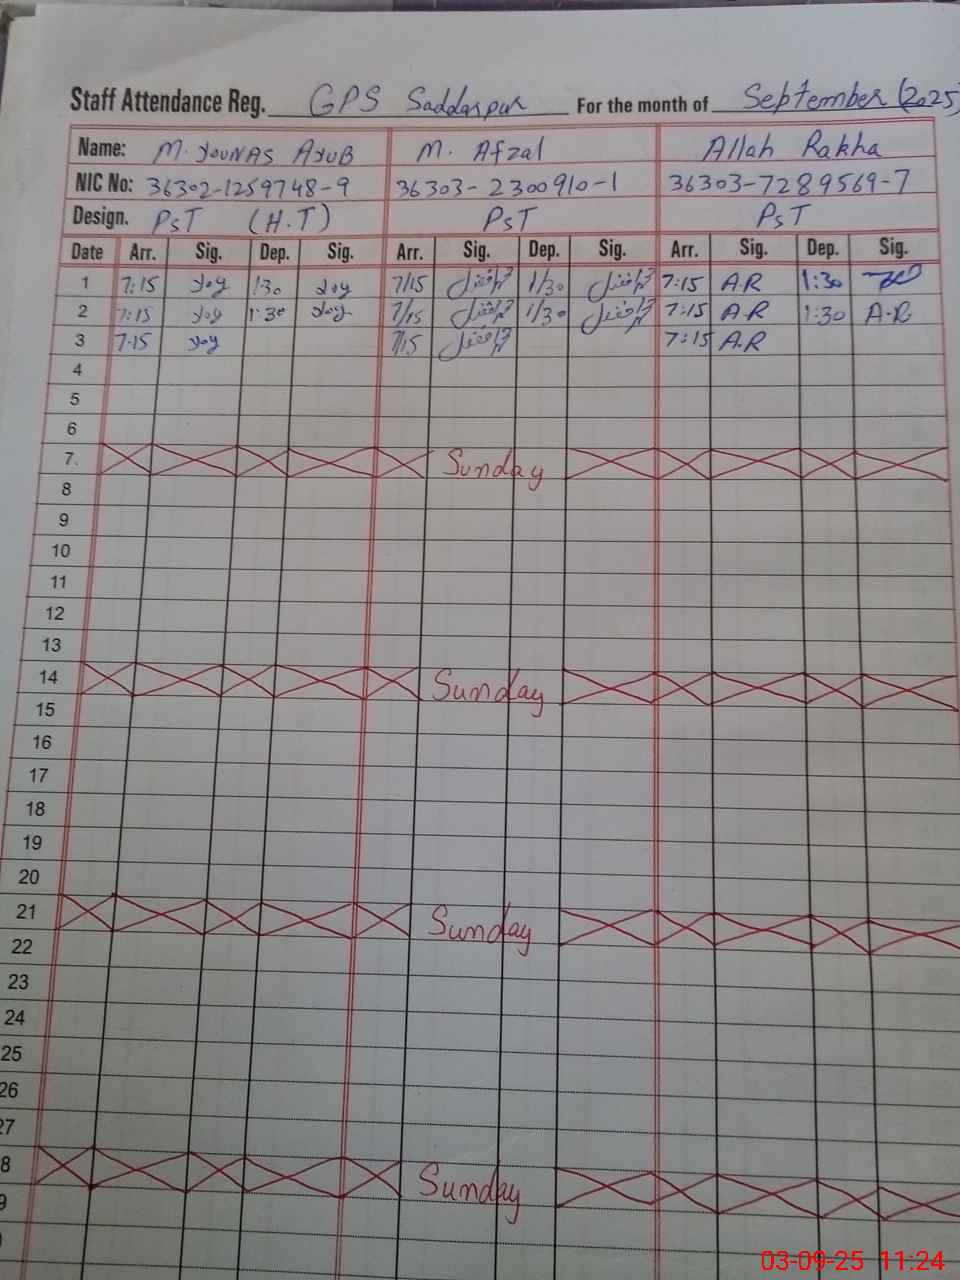 Staff Attendance Reg. GPS Saddarpur For the month of September (2025)
Name: M. YOUNAS AYUB M. Afzal Allah Rakha
NIC No: 36302-1259748-9 36303-2300910-1 36303-7289569-7
Design. PST (H.T) PST PST
Date Arr. Sig. Dep. Sig. Arr. Sig. Dep. Sig. Arr. Sig. Dep. Sig.
1 7:15 1:30 7/15 محمد افضل 1/30 محمد افضل 7:15 A.R 1:30
2 7:15 1:30 7/15 محمد افضل 1/30 محمد افضل 7:15 A.R 1:30 A.R
3 7.15 7/15 محمد افضل 7:15 A.R
4
5
6
7. Sunday
8
9
10
11
12
13
14 Sunday
15
16
17
18
19
20
21 Sunday
22
23
24
25
26
27
8 Sunday
9
03-09-25 11:24